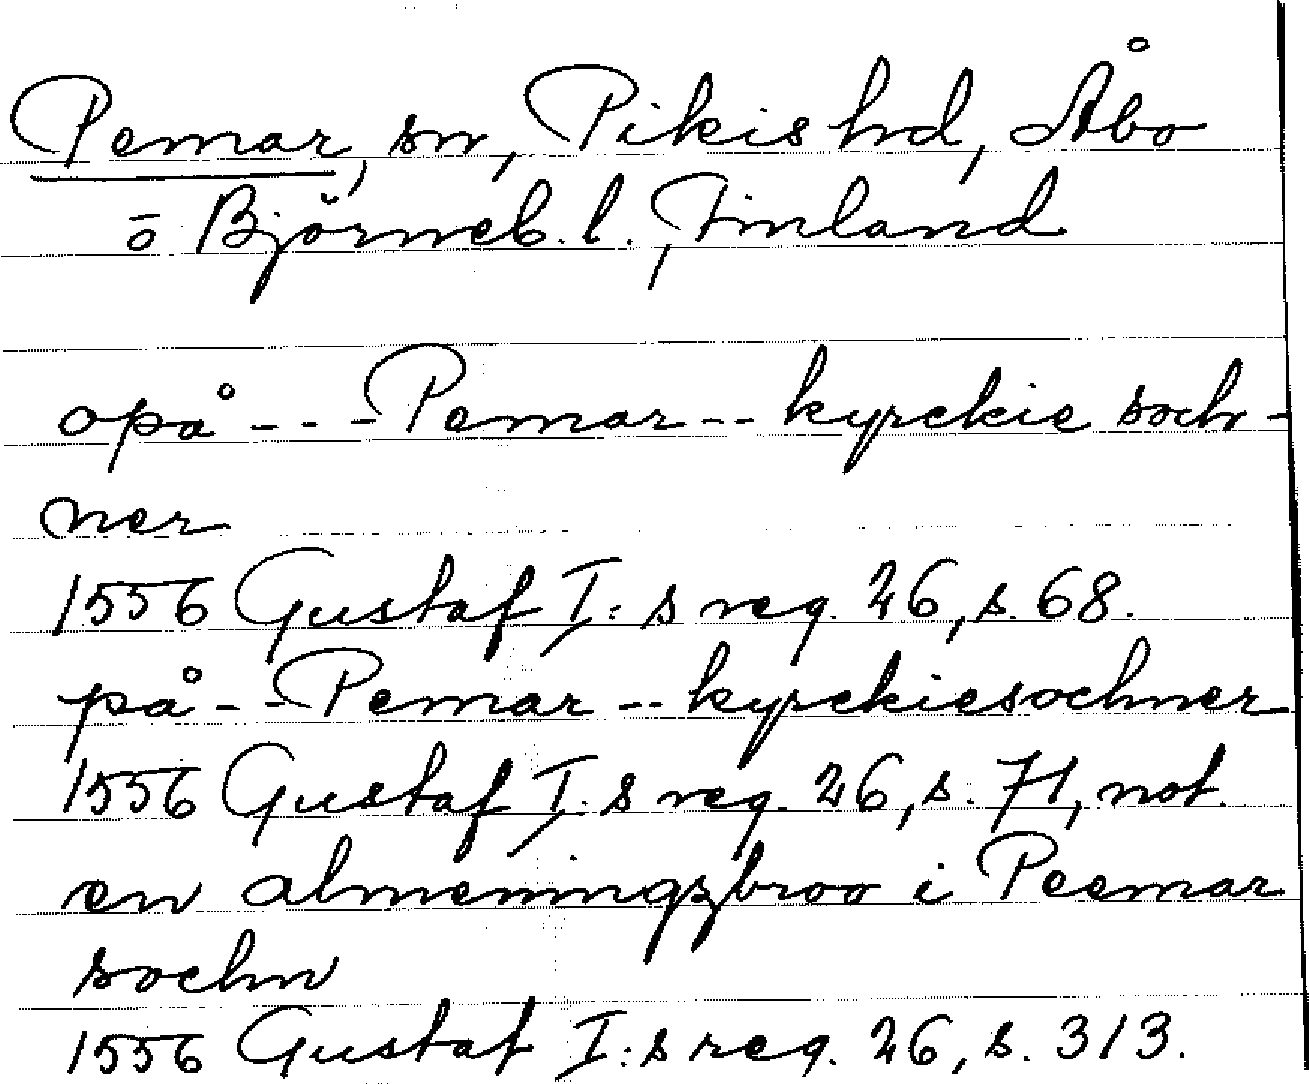 Pemar, sn, Pikis hd, Åbo
o Björneb. l., Finland
opå - - - Pemar - - kyrckie soch-
ner
1556 Gustaf I:s reg. 26, s. 68.
på - - Pemar - - kyrckiesochner
1556 Gustaf I:s reg. 26, s. 71, not.
en almeningzbroo i Peemar
sochn
1556 Gustaf I:s reg. 26, s. 313.